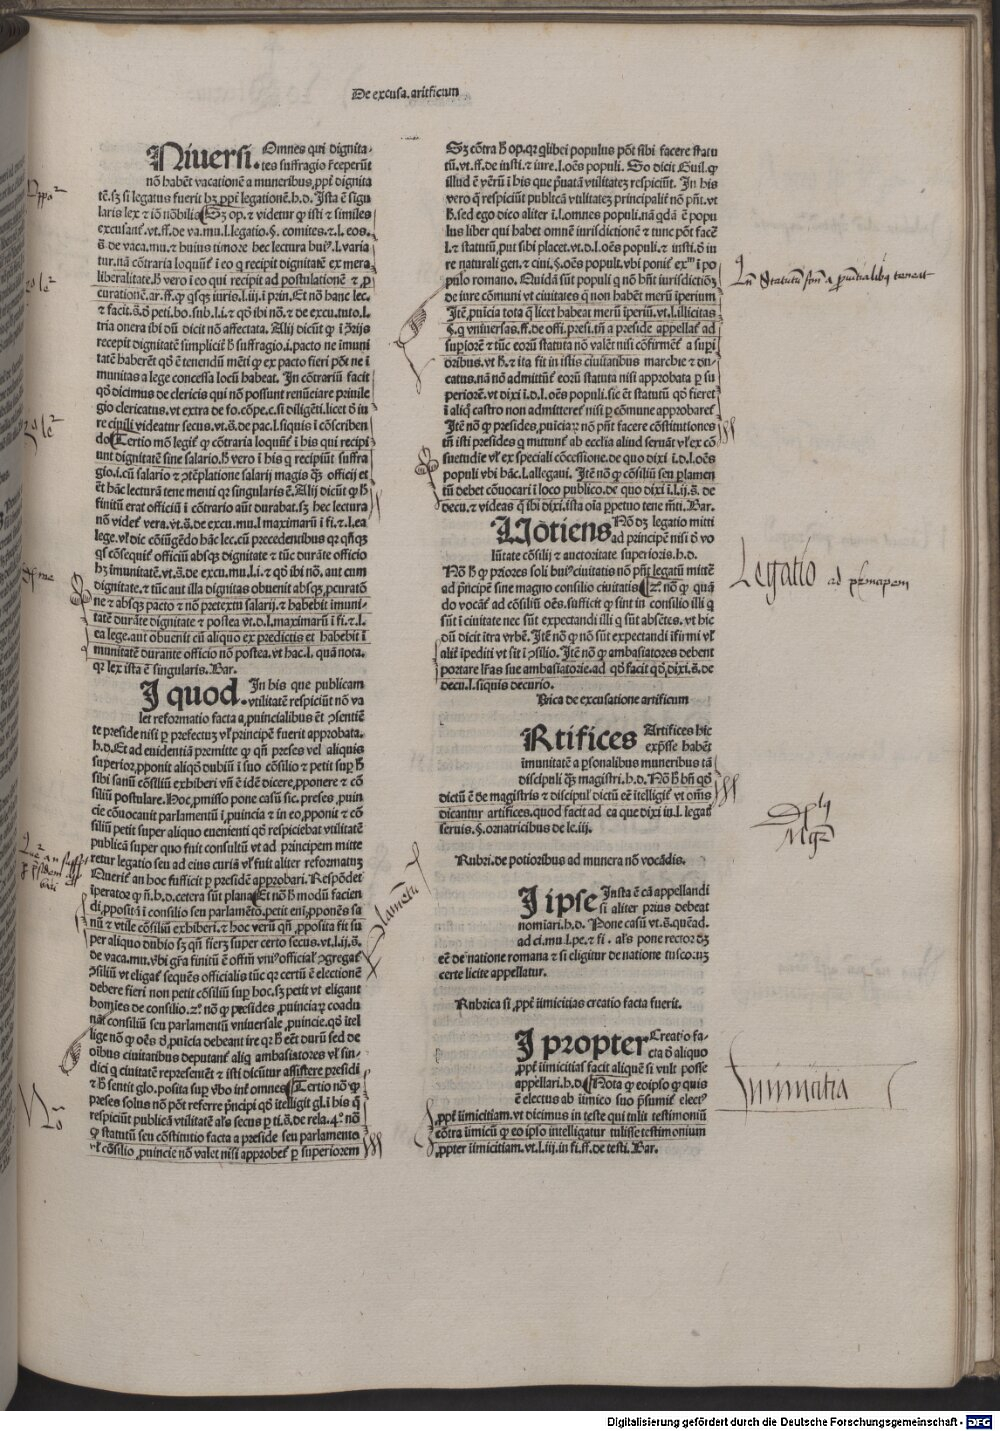 De excusa. artificum
Niuersi. Omnes qui dignita-
tes suffragio rͨeperūt
nō habēt vacationē a muneribus, ꝓpt̉ dignita
tē. sꝫ si legatus fuerit hꝫ ꝓpt̉ legationē. h.d. Ista ē sigu
laris lex ⁊ iō nōbilia Sꝫ op. ⁊ videtur ꝙ isti ⁊ similes
excusant̉. vt. ff. de va. mu. l. legatio. §. comites. ⁊ l. eos.
s̄. de vaca. mu. ⁊ huius timore hec lectura huiꝰ. l. varia
tur. nā cōtraria loquūt̉ ī eo q recipit dignitatē ex mera
liberalitate. h̄ vero ī eo qui recipit ad postulationē ⁊ ꝓ
curationē. ar. ff. ꝙ qͥsqꝫ iuris. l. iij. ī prin. Et nō hanc lec.
⁊ facit. s̄. ō peti. bo. sub. l. i. ⁊ qō ibi nō. ⁊ de excu. tuto. l.
tria onera ibi dū dicit nō affectata. Alij dicūt ꝙ ī ꝫ̄rijs
recepit dignitatē simplicit̉ h̄ suffragio. i. pacto ne īmuni
tatē haberēt qō ē tenendū mēti ꝙ ex pacto fieri pōt ne ī
munitas a lege concessa locū habeat. In cōtrariū facit
qō dicimus de clericis qui nō possunt renūciare priuile
gio clericatus. vt extra de fo. cōpe. c. si diligēti. licet ō iu
re ciuili videatur secus. vt. s̄. de pac. l. siquis ī cōscriben
do Tertio mō legit̉ ꝙ cōtraria loquūt̉ ī his qui recipi
unt dignitatē sine salario. h̄ vero ī his q recipiūt suffra
gio. i. cū salario ⁊ ꝯtēplatione salarij magis qꝫ officij et
ēt hāc lecturā tene menti qꝛ singularis ē. Alij dicūt ꝙ h̄
finitū erat officiū ī cōtrario aūt durabat. sꝫ hec lectura
nō videt̉ vera. vt. s̄. de excu. mu. l. maximarū ī fi. ⁊. l. ea
lege. vl̉ dic cōiūgēdo hāc lec. cū precedentibus qꝛ qn̄qꝫ
qs cōsequit̉ officiū absqꝫ dignitate ⁊ tūc durāte officio
hꝫ imunitatē. vt. s̄. de excu. mu. l. i. ⁊ qō ibi nō. aut cum
dignitate. ⁊ tūc aut illa dignitas obuenit absqꝫ ꝓcuratō
ne ⁊ absqꝫ pacto ⁊ nō pretextu salarij. ⁊ habebit īmuni-
tatē durāte dignitate ⁊ postea vt. d. l. maximarū ī fi. ⁊. l.
ea lege. aut obuenit cū aliquo ex predictis et habebit ī
munitatē durante officio nō postea. vt hac. l. quā nota.
qꝛ lex ista ē singularis. Bar.
I quod. In his que publicam
vtilitatē respiciūt nō va
let reformatio facta a ꝓuincialibus ēt ꝯsentiē
te preside nisi ꝑ prefectuꝫ vl̉ principē fuerit approbata.
h.d. Et ad euidentiā premitte ꝙ qn̄ preses vel aliquis
superior, ꝓponit aliqō dubiū ī suo cōsilio ⁊ petit suꝑ h̄
sibi sanū cōsiliū exhiberi vn̄ ē idē dicere, ꝓponere ⁊ cō
siliū postulare. Hoc, ꝓmisso pone casū sic. preses, ꝓuin
cie cōuocauit parlamentū ī, ꝓuincia ⁊ in eo, ꝓponit ⁊ cō
siliū petit super aliquo euenienti qō respiciebat vtilitatē
publicā super quo fuit consultū vt ad principem mitte
retur legatio seu ad eius curiā vl̉ fuit aliter reformatuꝫ
Querit̉ an hoc sufficit ꝑ presidē approbari. Respōdet
īperator ꝙ n̄. h.d. cetera sūt plana Et nō h̄ modū facien
di, ꝓpositā ī consilio seu parlamēto. petit eni, ꝓponēs sa
nū ⁊ vtile cōsiliū exhiberi. ⁊ hoc verū qn̄, ꝓposita fit su
per aliquo dubio sꝫ qn̄ fierꝫ super certo secus. vt. l. ij. s̄.
de vaca. mu. vbi gr̄a finitū ē offm̄ vniꝰ official̉ ꝯgregat̉
ꝯsiliū vt eligat̉ sequēs officialis tūc qꝛ certū ē electionē
debere fieri non petit cōsiliū suꝑ hoc. sꝫ petit vt eligant
homīes de consilio. 2º. nō ꝙ presides, ꝓuinciaꝝ coadu
nāt consiliū seu parlamentū vniuersale, ꝓuincie. qō ītel
lige nō ꝙ oēs ō, ꝓuīcia debeant ire qꝛ h̄ eēt durū sed de
oībus ciuitatibus deputant̉ aliq ambasiatores vl̉ sin-
dici q ciuitatē representēt ⁊ isti dicūtur assistere presidi
⁊ h̄ sentit glo. posita suꝑ v̉bo int̉ omnes Tertio nō ꝙ
preses solus nō pōt referre p̄ncipi qō ītelligit gl. ī his q̄
respiciūt publicā vtilitatē al̉s secus ꝑ ti. s̄. de rela. 4.º nō
ꝙ statutū seu cōstitutio facta a preside seu parlamento
vl̉ cōsilio, ꝓuincie nō valet nisi approbet̉ ꝑ superiorem
Sꝫ cōtra h̄ op. qꝛ qͥlibet populus pōt sibi facere statu
tū. vt. ff. de insti. ⁊ iure. l. oēs populi. So dicit Guil. ꝙ
illud ē verū ī his que p̄uatā vtilitateꝫ respiciūt. In his
vero q̄ respiciūt publicā vtilitateꝫ principalit̉ nō pn̄t. vt
h̄. sed ego dico aliter ī. l. omnes populi. nā qdā ē popu
lus liber qui habet omnē iurisdictionē ⁊ tunc pōt facē
l. ⁊ statutū, put sibi placet. vt. d. l. oēs populi. ⁊ insti. ō iu
re naturali gen. ⁊ ciui. §. oēs populi. vbi ponit̉ exᵐ ī po
pulo romano. Quidā sūt populi q nō hn̄t iurisdictioꝫ
de iure cōmuni vt ciuitates q̄ non habēt merū īperium
Itē, ꝓuīcia tota q̄ licet habeat merū īperiū. vt. l. illicitas
§. q vniuersas. ff. de offi. presi. tn̄ a preside appellat̉ ad
suꝑiorē ⁊ tūc eorū statuta nō valēt nisi cōfirmēt̉ a suꝑi
oribus. vt h̄. ⁊ ita fit in istis ciuitatibus marchie ⁊ du-
catus. nā nō admittūt̉ eorū statuta nisi approbata ꝑ su
periorē. vt dixi ī. d. l. oēs populi. sic ēt statutū qō fieret
ī aliq̄ castro non admitteret̉ nisi ꝑ cōmune approbaret̉
Itē nō ꝙ presides, ꝓuīciaꝝ nō pn̄t facere cōstitutiones
tn̄ isti presides q mittunt̉ ab ecclia aliud seruāt vl̉ ex cō
suetudie vl̉ ex speciali cōcessione. de quo dixi ī. d. l. oēs
populi vbi hāc. l. allegaui. Itē nō ꝙ cōsiliū seu ꝑlamen
tū debet cōuocari ī loco publico. de quo dixi ī. l. ij. s̄. de
decu. ⁊ videas q̄ ibi dixi. ista oīa ꝑpetuo tene mēti. Bar.
Uotiens Nō dꝫ legatio mitti
ad principē nisi ō vo
lūtate cōsilij ⁊ auctoritate superioris. h.d.
Nō h̄ ꝙ priores soli huiꝰ ciuitatis nō pn̄t legatū mittē
ad prīcipē sine magno consilio ciuitatis 2º. nō ꝙ quā
do vocāt̉ ad cōsiliū oēs. sufficit ꝙ sint in consilio illi q̄
sūt ī ciuitate nec sūt expectandi illi q̄ sūt absētes. vt hic
dū dicit ītra vrbē. Itē nō ꝙ nō sūt expectandi īfirmi vl̉
alit̉ īpediti vt sīt ī ꝯsilio. Itē nō ꝙ ambasiatores debent
portare lr̄as sue ambasiatorie. ad qō facit qō, dixi. s̄. de
decu. l. siquis decurio.
Brica de excusatione artificum
Rtifices Artifices hic
exp̄sse habēt
īmunitatē a ꝑsonalibus muneribus tā
discipuli qꝫ magistri. h.d. Nō h̄ bn̄ qō
dictū ē de magistris ⁊ discipul̉ dictū eē ītelligit̉ vt om̄s
dicantur artifices. quod facit ad ea que dixi in. l. legat̉
seruis. §. ornatricibus de le. iij.
Rubri. de potioribus ad munera nō vocādis.
I ipse In sta ē cā appellandi
si aliter prius debeat
nomīari. h.d. Pone casū vt. s̄. quēad.
ad ci. mu. l. pe. ⁊ fi. al̉s pone rector dꝫ
eē de natione romana ⁊ si eligitur de natione tusco: uꝫ
certe licite appellatur.
Rubrica si, ꝓpt̉ īimicitias creatio facta fuerit.
I propter Creatio fa-
cta ō aliquo
, ꝓpt̉ īimicitias facit aliquē si vult posse
appellari. h.d. Nota ꝙ eoipso ꝙ quis
ē electus ab īimico suo p̄sumit̉ electꝰ
, ꝓpt̉ īimicitiam. vt dicimus in teste qui tulit testimoniū
cōtra īimicū ꝙ eo ipso intelligatur tulisse testimonium
, ꝓpter īimicitiam. vt. l. iij. in fi. ff. de testi. Bar.
Legatio ad principem
Inimicitia
Digitalisierung gefördert durch die Deutsche Forschungsgemeinschaft - DFG